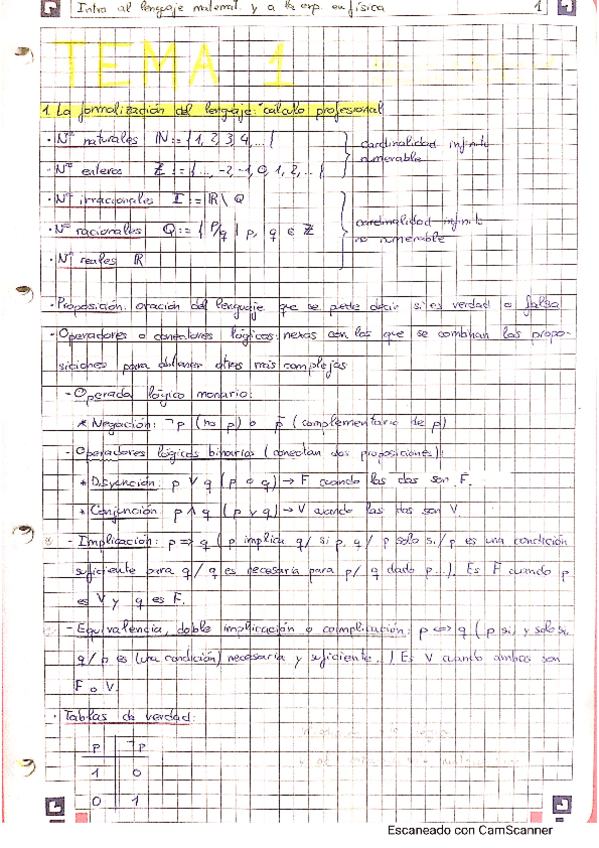 Intro al lenguaje matemat. y a la exp. en física 1
TEMA 1
1. La formalización del lenguaje: cálculo profesional
· Nº naturales ℕ := {1, 2, 3, 4, ...}
cardinalidad infinita
numerable
· Nº enteros ℤ := {..., -2, -1, 0, 1, 2, ...}
· Nº irracionales I := ℝ \ Q
· Nº racionales Q := { p/q | p, q ∈ ℤ
cardinalidad infinita
no numerable
· Nº reales ℝ
· Proposición: oración del lenguaje que se puede decir si es verdad o falso
· Operadores o conectores lógicos: nexos con los que se combinan las propo-
siciones para obtener otras más complejas
- Operador lógico monario:
* Negación: ¬p (no p) o p̄ (complementario de p)
- Operadores lógicos binarios (conectan dos proposiciones):
* Disyunción: p ∨ q (p o q) → F cuando las dos son F.
* Conjunción p ∧ q (p y q) → V cuando las dos son V.
- Implicación: p ⇒ q (p implica q/ si p, q/ p solo si/ p es una condición
suficiente para q/ q es necesaria para p/ q dado p...). Es F cuando p
es V y q es F.
- Equivalencia, doble implicación o coimplicación: p ⇔ q (p si y solo si
q/ p es (una condición) necesaria y suficiente..) Es V cuando ambos son
F o V.
· Tablas de verdad:
p ¬p
1 0
0 1
Escaneado con CamScanner